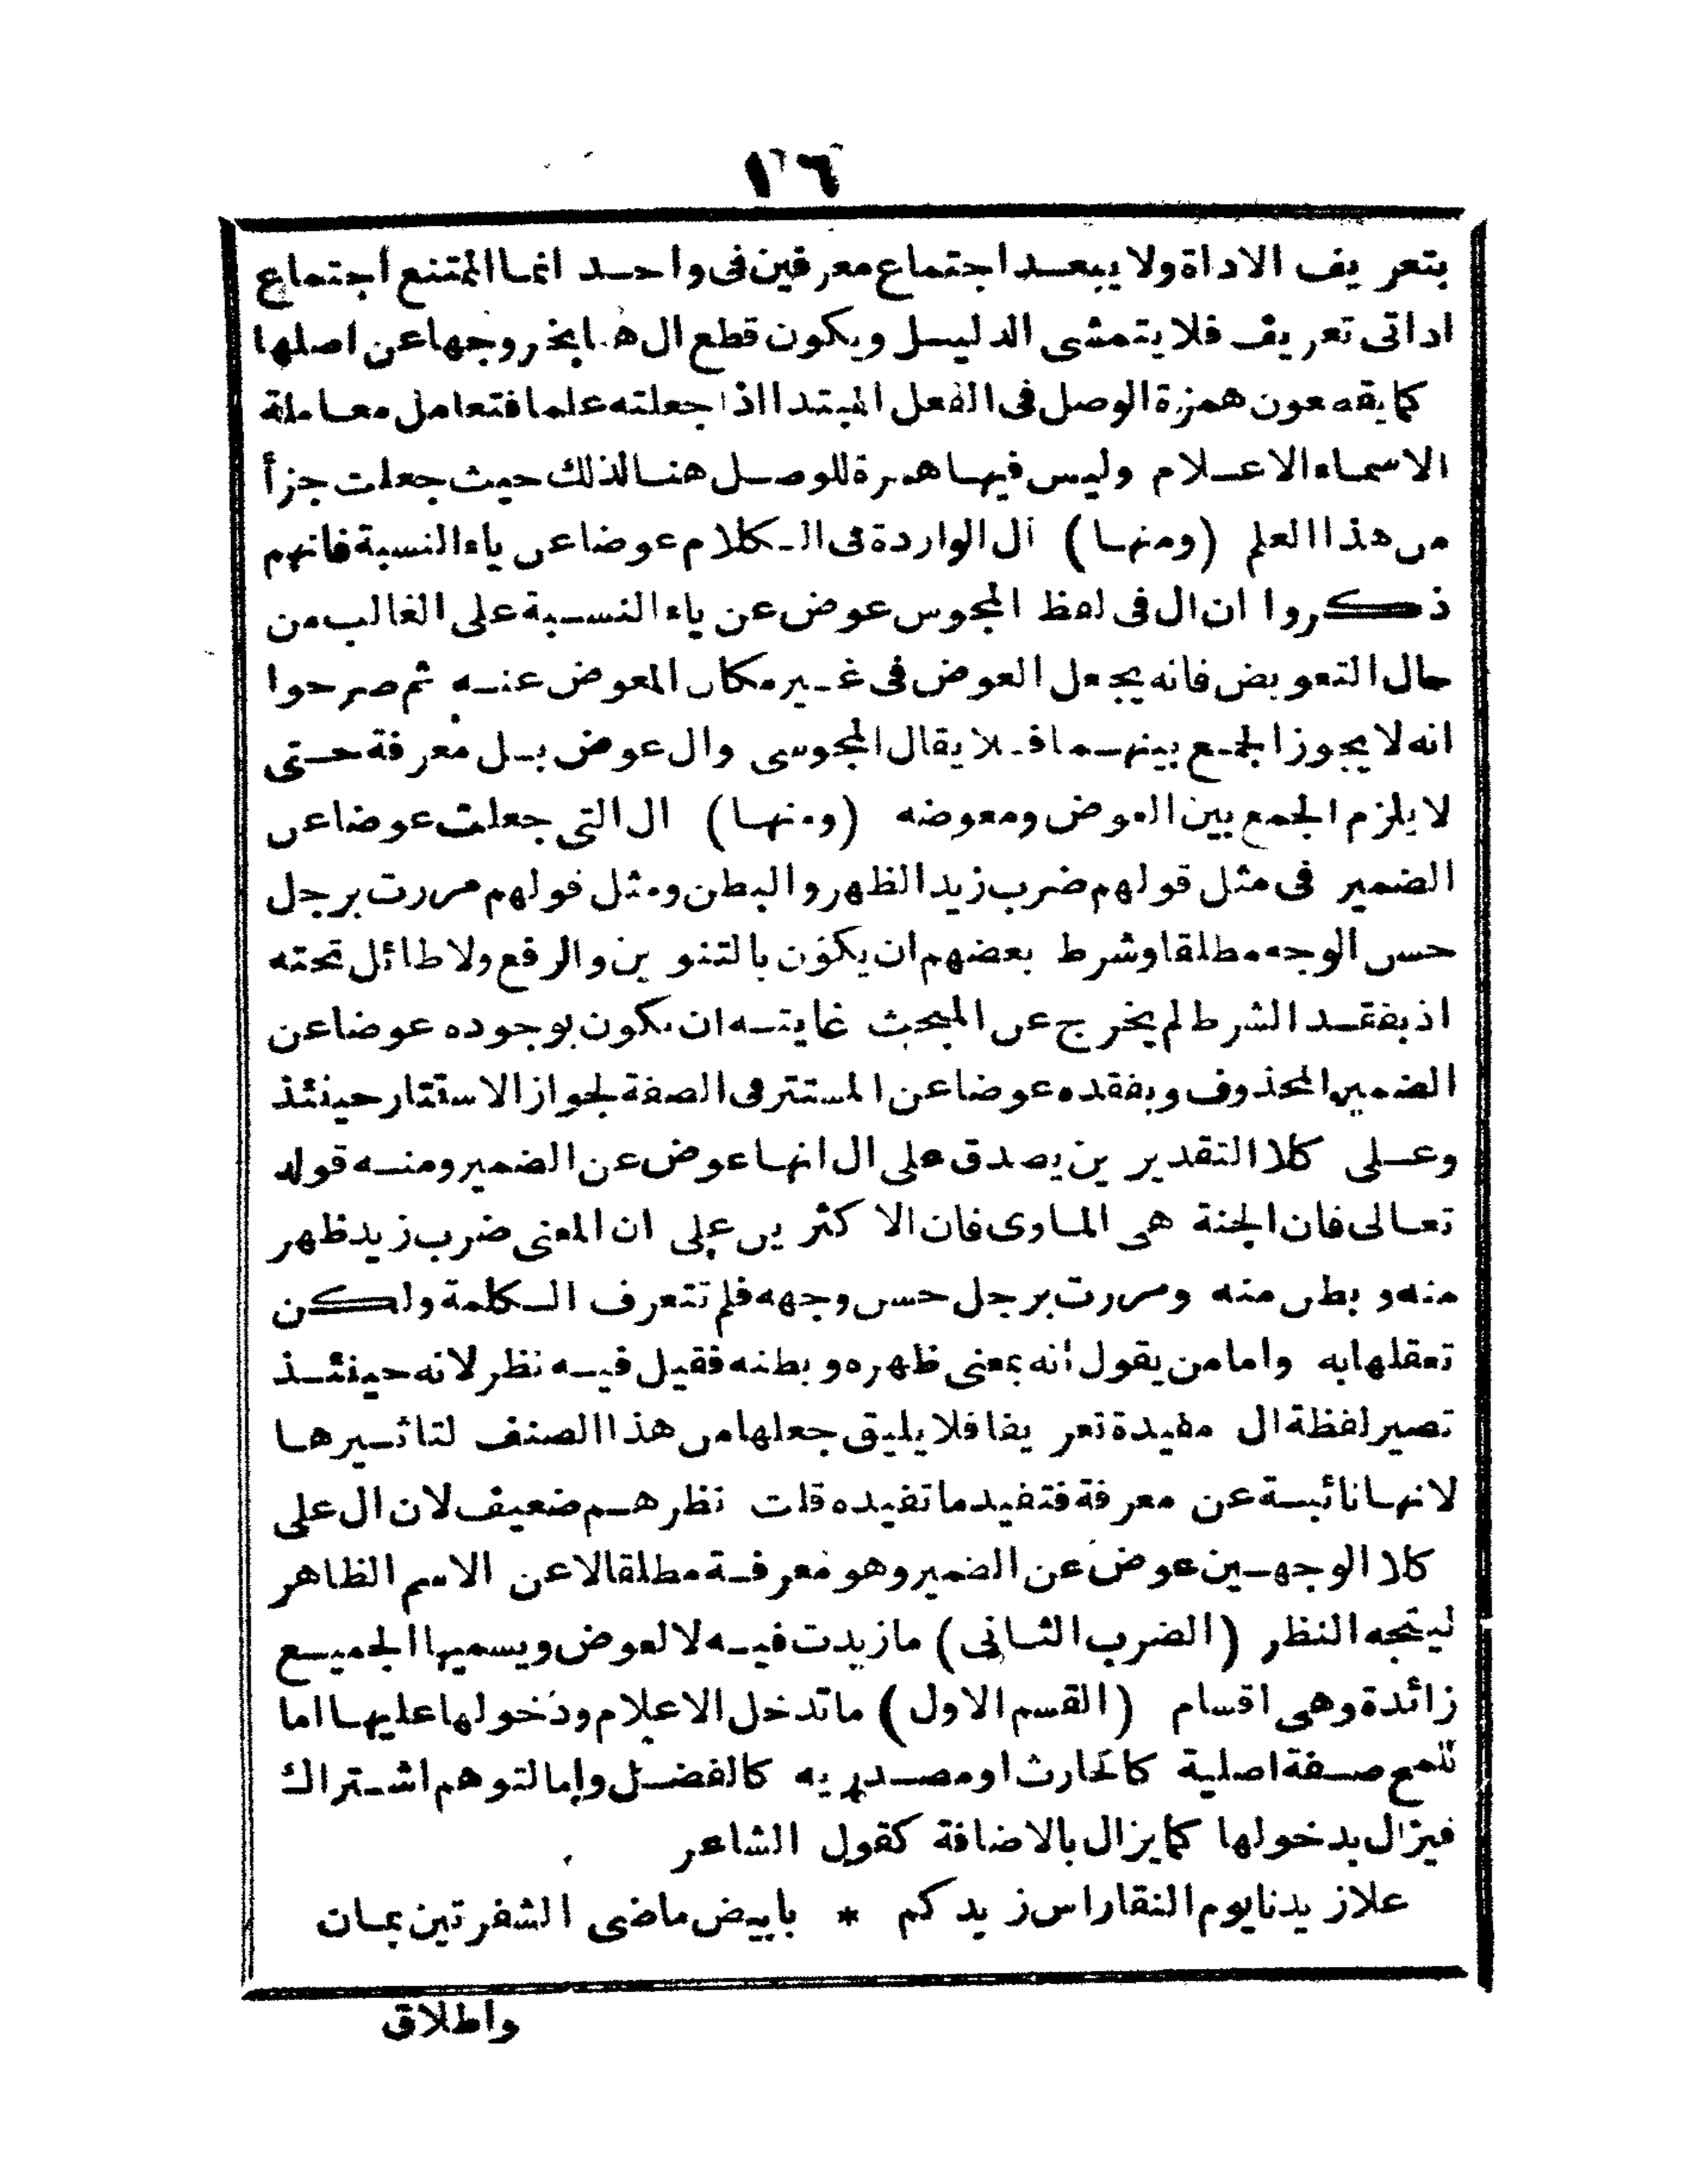 ١٦
بتعريف الاداة ولا يبعد اجتماع معرفين فى واحد انما الممتنع اجتماع
اداتى تعريف فلا يتمشى الدليل ويكون قطع ال هنا بخروجها عن اصلها
كما يقطعون همزة الوصل فى الفعل المبتدا اذا جعلته علما فتعامل معاملة
الاسماء الاعلام وليس فيها همزة للوصل هنا لذلك حيث جعلت جزأ
من هذا العلم (ومنها) ال الواردة فى الكلام عوضا عن ياء النسبة فانهم
ذكروا ان ال فى لفظ المجوس عوض عن ياء النسبة على الغالب من
حال التعويض فانه يجعل العوض فى غير مكان المعوض عنه ثم صرحوا
انه لا يجوز الجمع بينهما فلا يقال المجوسى وال عوض بل معرفة حتى
لا يلزم الجمع بين العوض ومعوضه (ومنها) ال التى جعلت عوضا عن
الضمير فى مثل قولهم ضرب زيد الظهر والبطن ومثل قولهم مررت برجل
حسن الوجه مطلقا وشرط بعضهم ان يكون بالتنوين والرفع ولا طائل تحته
اذ بفقد الشرط لم يخرج عن المبحث غايته ان يكون بوجوده عوضا عن
الضمير المحذوف وبفقده عوضا عن المستتر فى الصفة لجواز الاستتار حينئذ
وعلى كلا التقديرين يصدق على ال انها عوض عن الضمير ومنه قوله
تعالى فان الجنة هى الماوى فان الاكثرين على ان المعنى ضرب زيد ظهر
منه وبطن منه ومررت برجل حسن وجهه فلم تتعرف الكلمة ولكن
تعقلها به واما من يقول انه بمعنى ظهره وبطنه فقيل فيه نظر لانه حينئذ
تصير لفظة ال مفيدة تعريفا فلا يليق جعلها من هذا الصنف لتاثيرها
لانها نائبة عن معرفة فتفيد ما تفيده قلت نظرهم ضعيف لان ال على
كلا الوجهين عوض عن الضمير وهو معرفة مطلقا لا عن الاسم الظاهر
ليتجه النظر (الضرب الثانى) ما زيدت فيه لا لعوض ويسميها الجميع
زائدة وهى اقسام (القسم الاول) ما تدخل الاعلام ودخولها عليها اما
للمع صفة اصلية كالحارث او مصدريه كالفضل واما لتوهم اشتراك
فيزال بدخولها كما يزال بالاضافة كقول الشاعر
علا زيدنا يوم النقا راس زيدكم * بابيض ماضى الشفرتين يمان
واطلاق